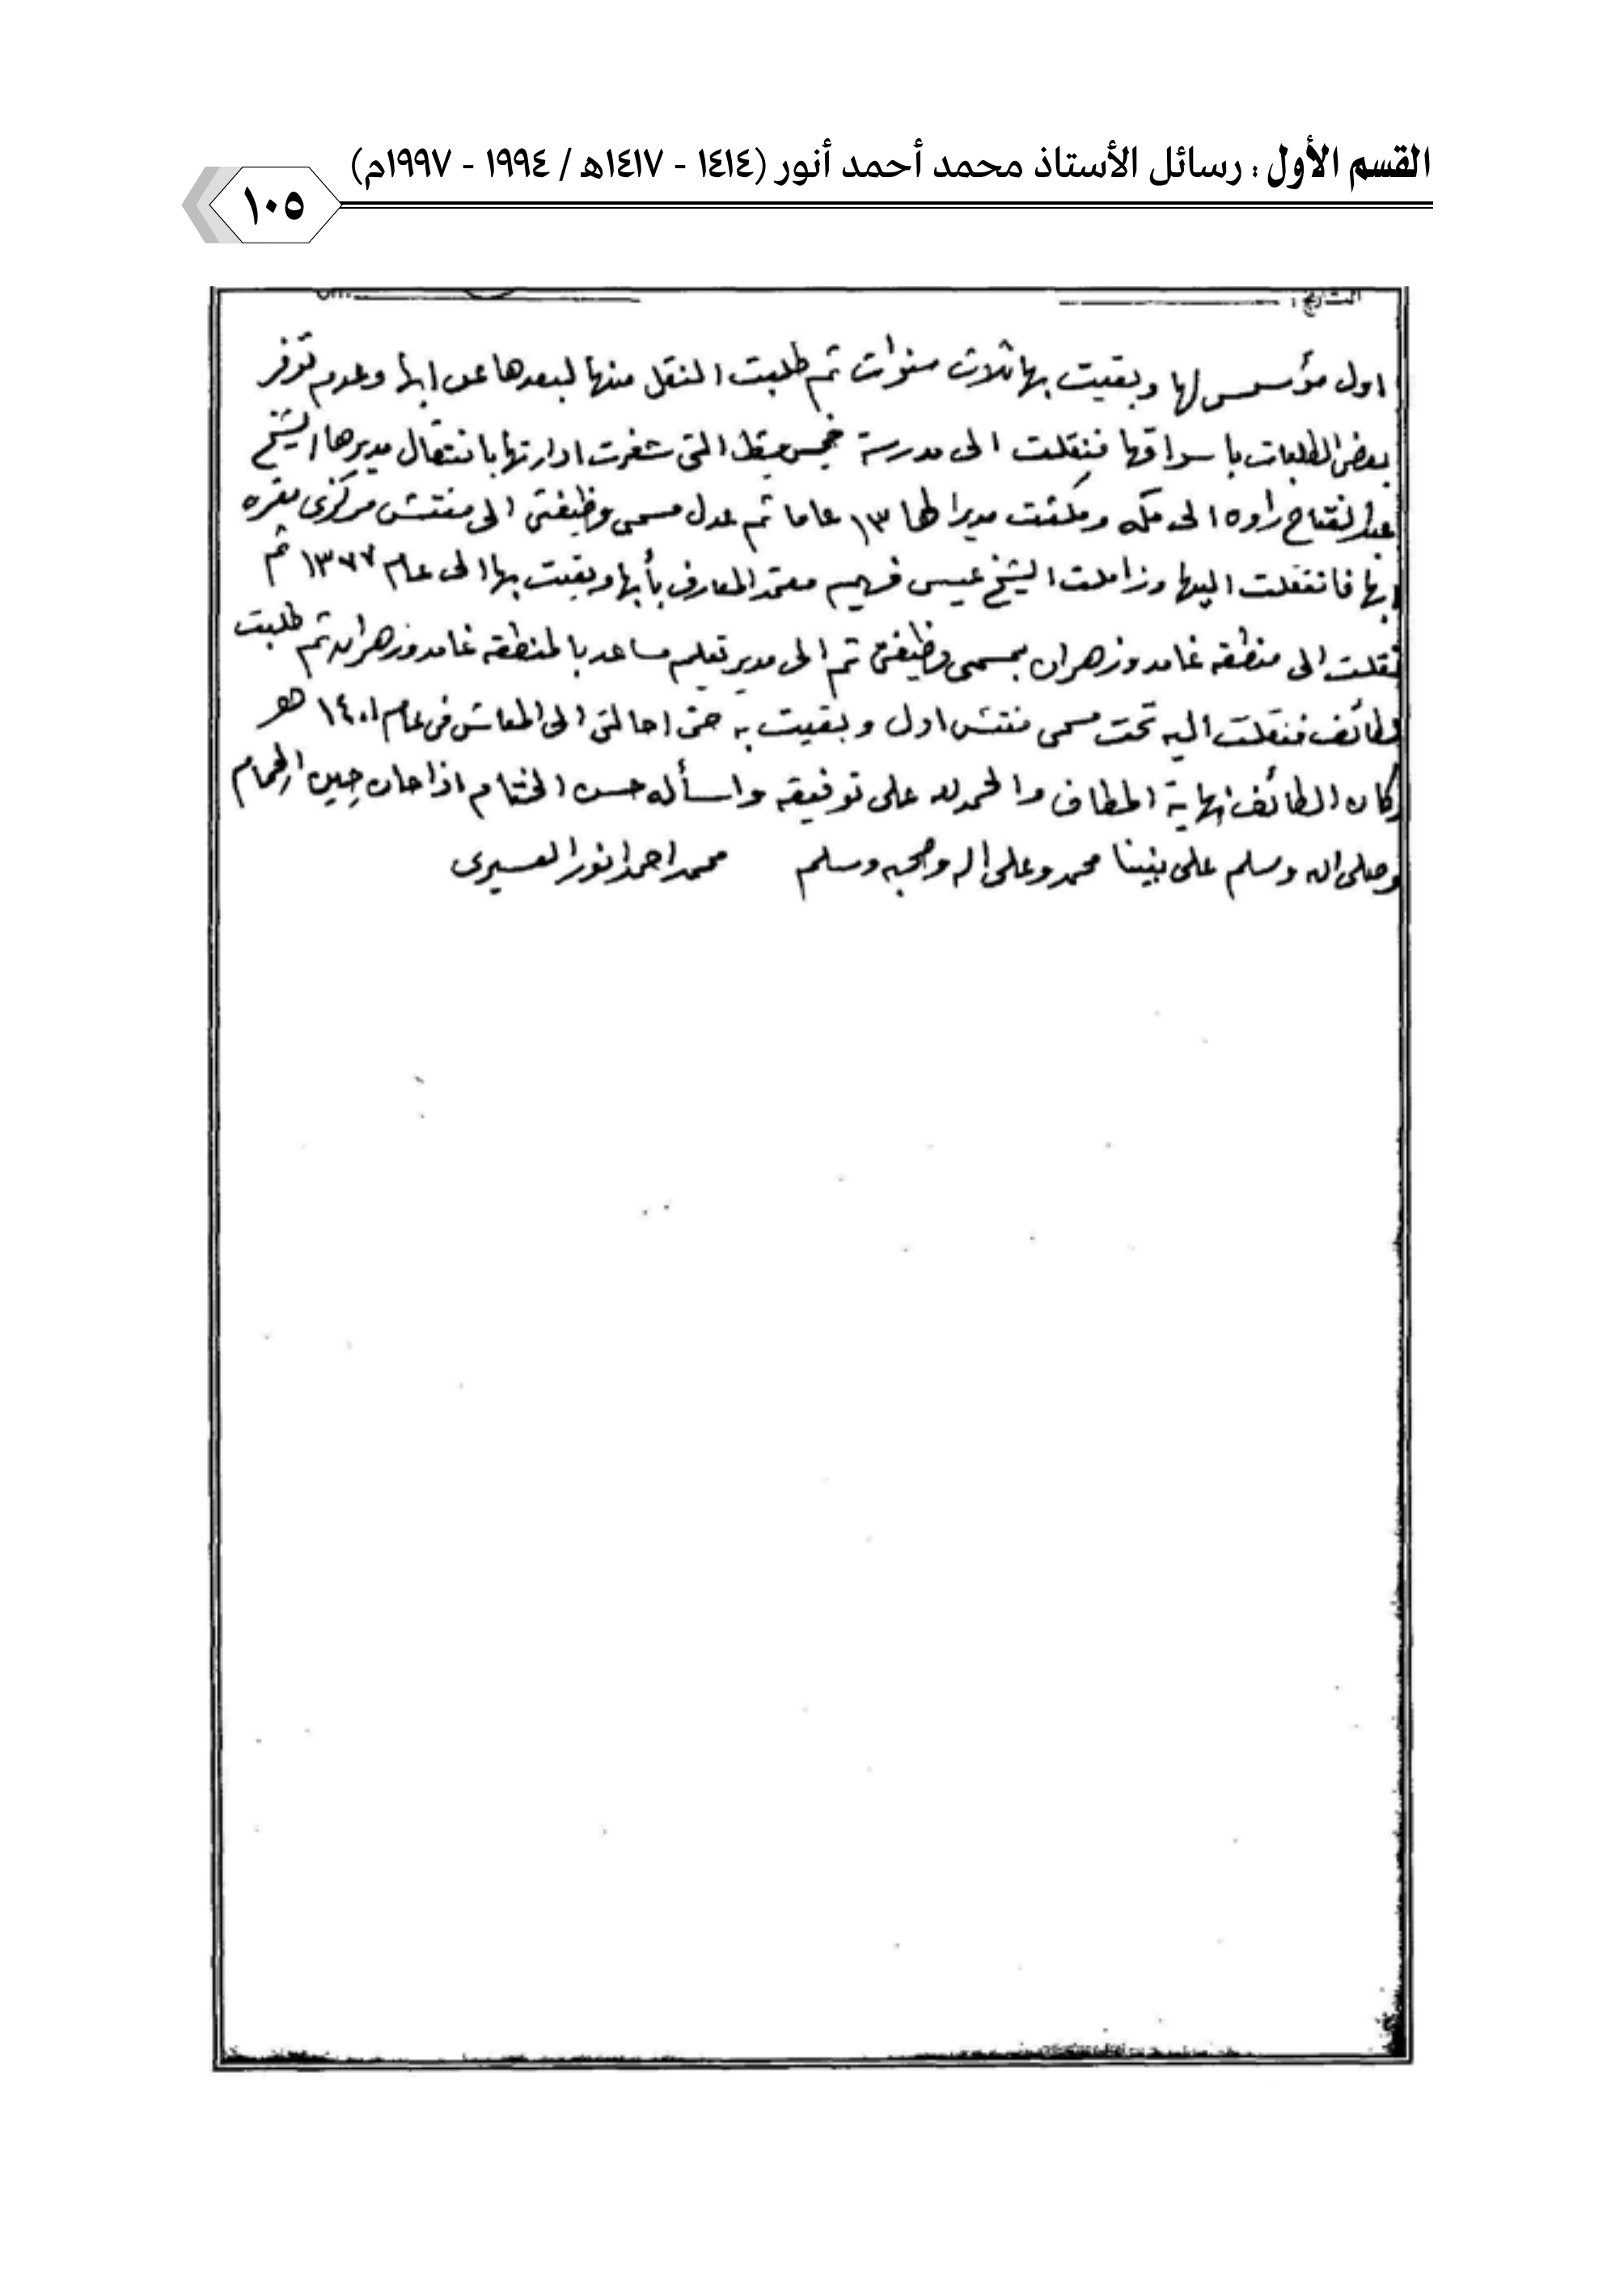 القسم الأول : رسائل الأستاذ محمد أحمد أنور (١٤١٤ - ١٤١٧هـ / ١٩٩٤ - ١٩٩٧م)
١٠٥
التاريخ :
اول مؤسس لها وبقيت بها ثلاث سنوات ثم طلبت النقل منها لبعدها عن ابها وعدم توفر
بعض الطلبات باسواقها فنقلت الى مدرسة خميس مشيط التى شغرت ادارتها بانتقال مديرها الشيخ
عبد الفتاح راوه الى مكه ومكثت مديرا لها ١٣ عاما ثم عدل مسمى وظيفتى الى مفتش مركزى مقره
ابها فانتقلت اليها وزاملت الشيخ عيسى فهيم معتمد المعارف بأبها وبقيت بها الى عام ١٣٧٧ ثم
نقلت الى منطقه غامد وزهران بمسمى وظيفتى ثم الى مدير تعليم مساعد بالمنطقه غامد وزهران ثم طلبت
الطائف فنقلت اليه تحت مسمى مفتش اول وبقيت به حتى احالتى الى المعاش فى عام ١٤٠١ هـ
وكان الطائف نهاية المطاف والحمد لله على توفيقه واسأله حسن الختام اذا حان حِين الحِمام
وصلى الله وسلم على نبينا محمد وعلى اله وصحبه وسلم محمد احمد انور العسيرى